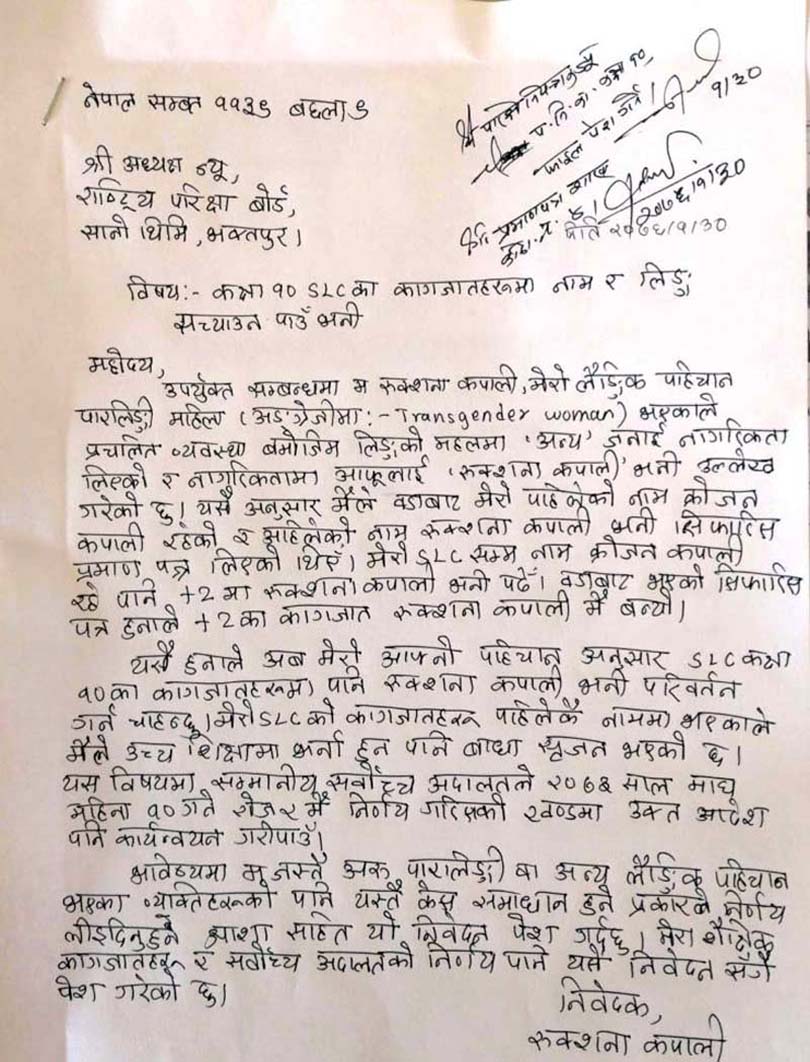 नेपाल सम्बत ११३९ बछलाउ
श्री अध्यक्ष ज्यू,
राष्ट्रिय परिक्षा बोर्ड,
सानो थिमि, भक्तपुर।
प. नि. का. कक्षा १०
फाईल पेश गर्ने।
१/३०
प्रमाणपत्र शाखा
२०७६/१/३०
मिति २०७६/१/३०
विषय:- कक्षा १० SLC का कागजातहरूमा नाम र लिङ्ग
सच्याउन पाउँ भनी
महोदय,
उपर्युक्त सम्बन्धमा म रुक्शना कपाली, मेरो लैङ्गिक पहिचान
पारलिङ्गी महिला (अङग्रेजीमा:- Transgender woman) भएकाले
प्रचलित व्यवस्था बमोजिम लिङ्गको महलमा 'अन्य' जनाई नागरिकता
लिएको र नागरिकतामा आफूलाई 'रुक्शना कपाली' भनी उल्लेख
गरेको छु। यसै अनुसार मैले वडाबाट मेरो पहिलेको नाम क्रोजन
कपाली रहेको र अहिलेको नाम रुक्शना कपाली भनी सिफारिस
प्रमाण पत्र लिएको थिएँ। मेरो SLC सम्म नाम क्रोजन कपाली
रहे पनि +2 मा रुक्शना कपाली भनी पढेँ। वडाबाट भएको सिफारिस
पत्र हुनाले +2 का कागजात रुक्शना कपाली मै बन्यो।
यसै हुनाले अब मेरो आफ्नो पहिचान अनुसार SLC कक्षा
१० का कागजातहरूमा पनि रुक्शना कपाली भनी परिवर्तन
गर्न चाहन्छु। मेरो SLC को कागजातहरू पहिलेकै नाममा भएकाले
मैले उच्च शिक्षामा भर्ना हुन पनि बाधा सृजत भएको छ।
यस विषयमा सम्मानीय सर्वोच्च अदालतले २०७३ साल माघ
महिना १० गते रोज २ मै निर्णय गरिसकेको खण्डमा उक्त आदेश
पनि कार्यन्वयन गरीपाउँ।
भविष्यमा म जस्तै अरू पारलिङ्गी वा अन्य लैङ्गिक पहिचान
भएका व्यक्तिहरूको पनि यस्तै केस समाधान हुने प्रकारले निर्णय
लीइदिनुहुने आशा सहित यो निवेदन पेश गर्दछु। मेरा शैक्षिक
कागजातहरू र सर्वोच्च अदालतको निर्णय पनि यसै निवेदन सँगै
पेश गरेको छु।
निवेदक,
रुक्शना कपाली